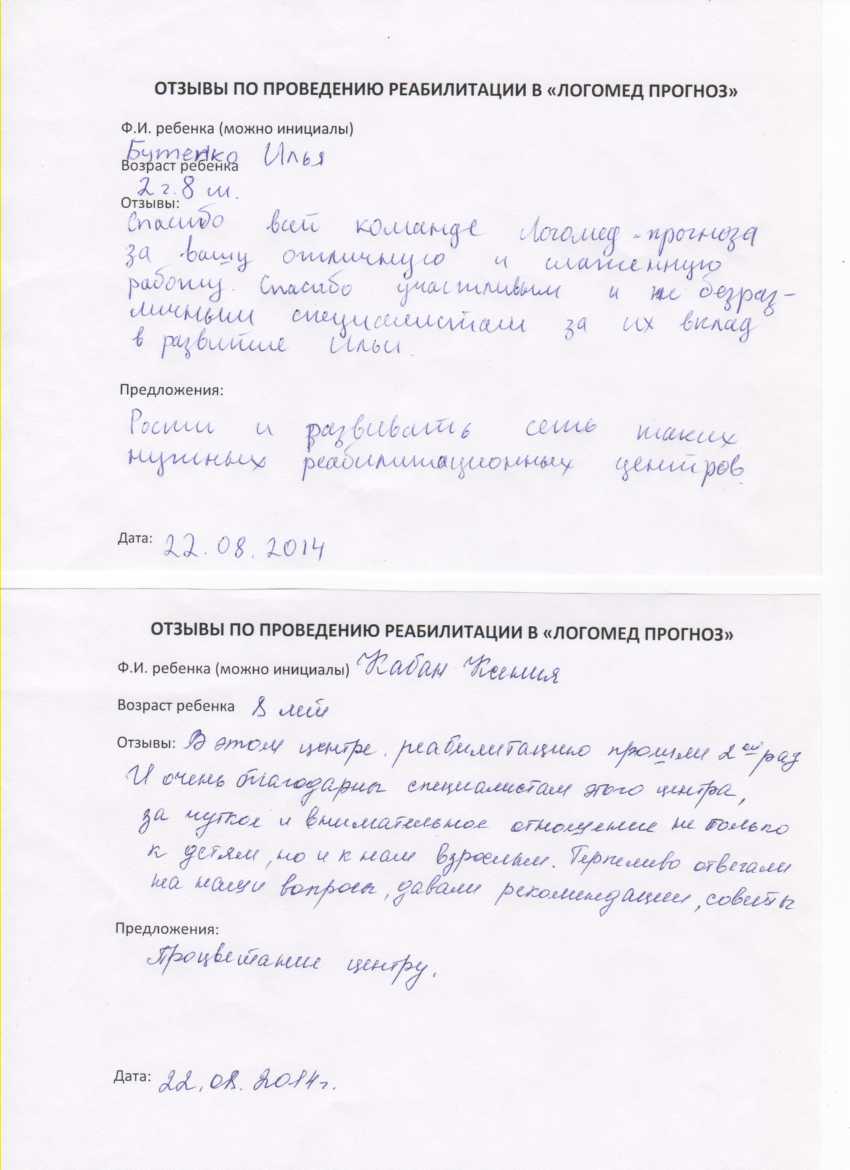 ОТЗЫВЫ ПО ПРОВЕДЕНИЮ РЕАБИЛИТАЦИИ В «ЛОГОМЕД ПРОГНОЗ»
Ф.И. ребенка (можно инициалы)
Бутенко Илья
Возраст ребенка
2 г. 8 м.
Отзывы:
Спасибо всей команде Логомед-прогноза
за вашу отличную и слаженную
работу. Спасибо участливым и не безраз-
личным специалистам за их вклад
в развитие Ильи.
Предложения:
Расти и развивать сеть таких
нужных реабилитационных центров.
Дата: 22.08.2014
ОТЗЫВЫ ПО ПРОВЕДЕНИЮ РЕАБИЛИТАЦИИ В «ЛОГОМЕД ПРОГНОЗ»
Ф.И. ребенка (можно инициалы) Кабан Ксения
Возраст ребенка 8 лет
Отзывы: В этом центре реабилитацию прошли 2ой раз
И очень благодарны специалистам этого центра,
за чуткое и внимательное отношение не только
к детям, но и к нам взрослым. Терпеливо отвечали
на наши вопросы, давали рекомендации, советы
Предложения:
Процветание центру.
Дата: 22.08.2014г.